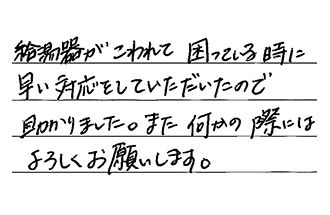 給湯器がこわれて 困っている時に
早い対応をしていただいたので
助かりました。また 何かの 際には
よろしくお願いします。